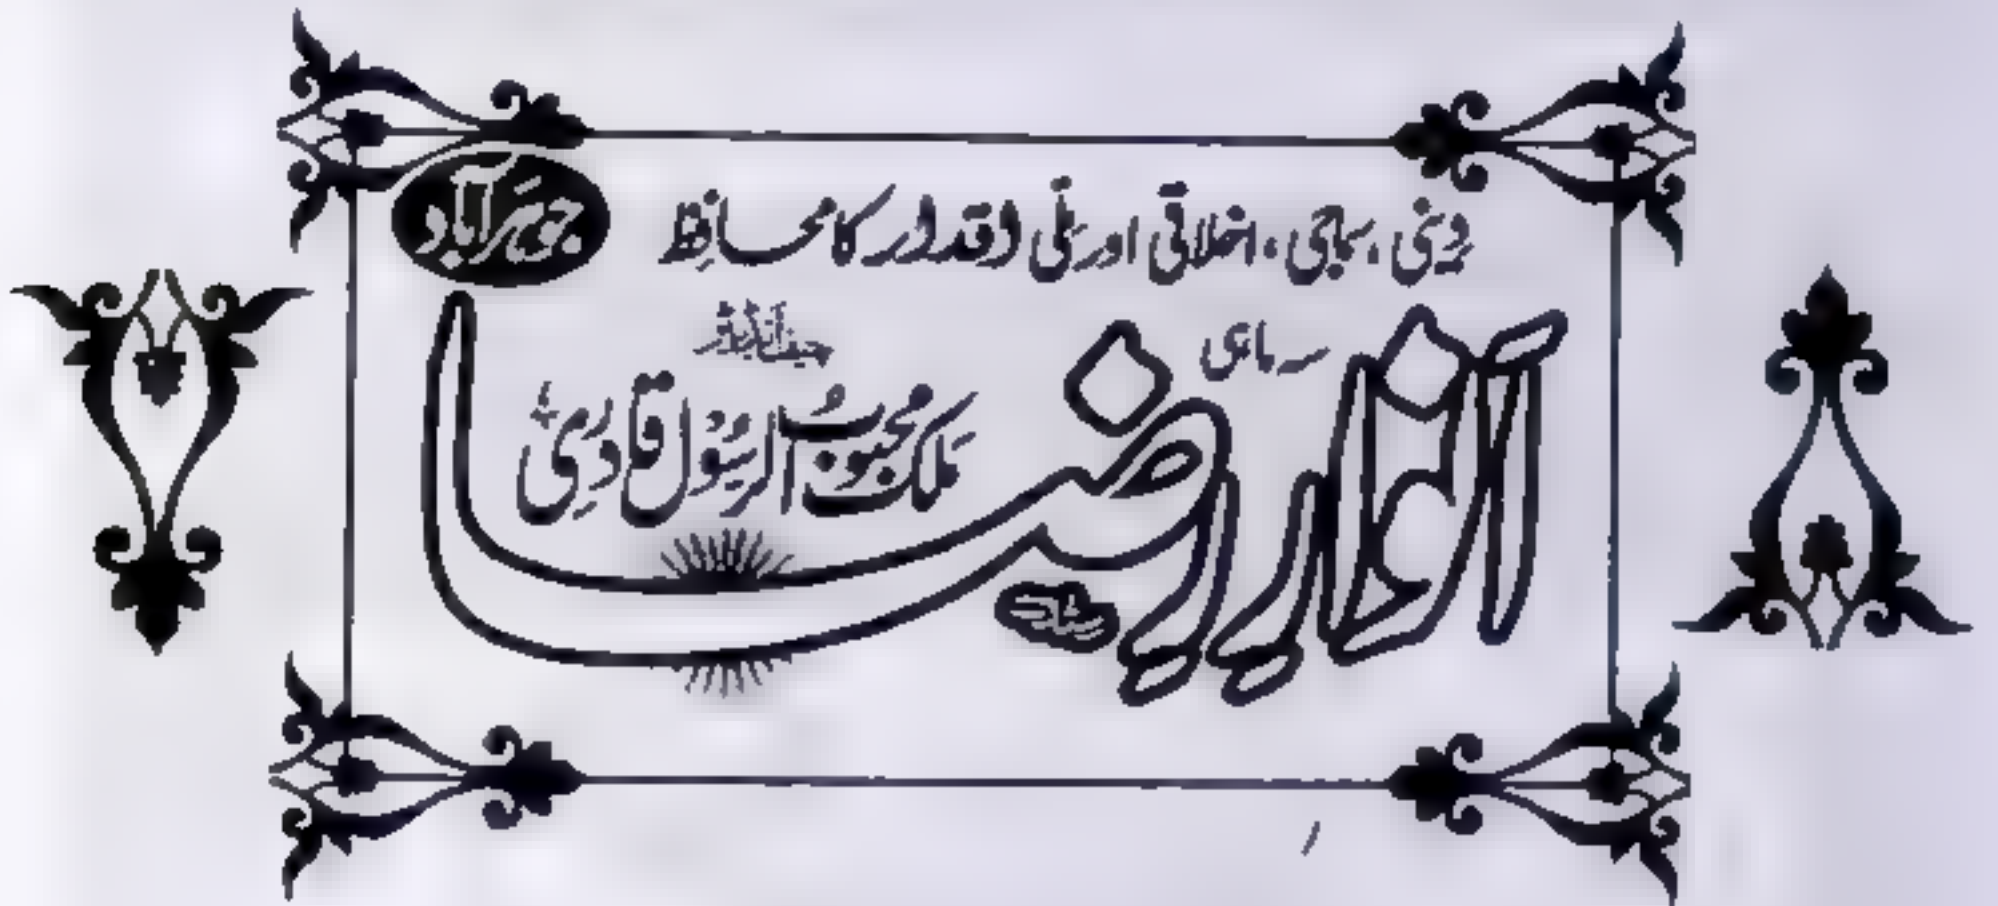 دینی، سماجی، اخلاقی اور ملی اقدار کا محافظ
جوہرآباد
سہ ماہی
انوارِ رضا
چیف ایڈیٹر
ملک محبوب الرسول قادری